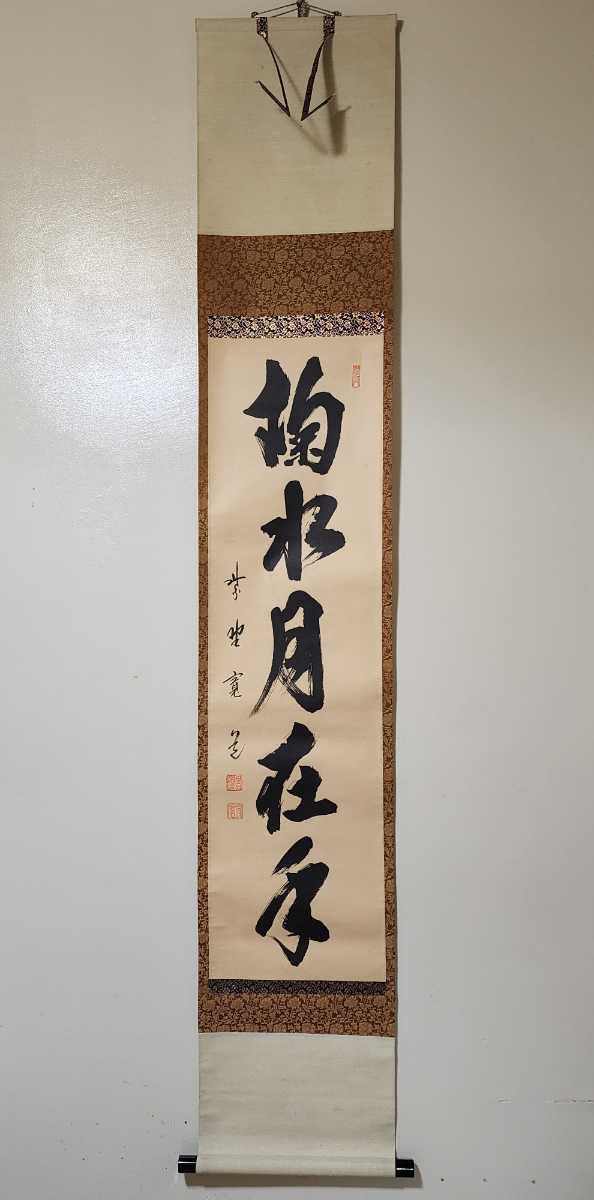 掬水月在手
紫野寛道